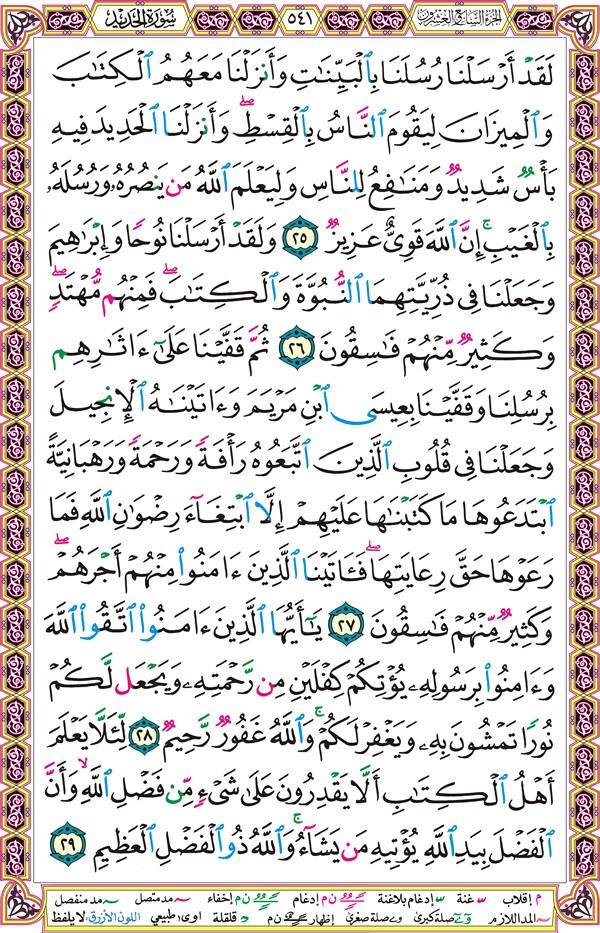 الجزء السابع والعشرون ٥٤١ سورة الحديد
لَقَدۡ أَرۡسَلۡنَا رُسُلَنَا بِٱلۡبَيِّنَٰتِ وَأَنزَلۡنَا مَعَهُمُ ٱلۡكِتَٰبَ
وَٱلۡمِيزَانَ لِيَقُومَ ٱلنَّاسُ بِٱلۡقِسۡطِۖ وَأَنزَلۡنَا ٱلۡحَدِيدَ فِيهِ
بَأۡسٞ شَدِيدٞ وَمَنَٰفِعُ لِلنَّاسِ وَلِيَعۡلَمَ ٱللَّهُ مَن يَنصُرُهُۥ وَرُسُلَهُۥ
بِٱلۡغَيۡبِۚ إِنَّ ٱللَّهَ قَوِيٌّ عَزِيزٞ ٢٥ وَلَقَدۡ أَرۡسَلۡنَا نُوحٗا وَإِبۡرَٰهِيمَ
وَجَعَلۡنَا فِي ذُرِّيَّتِهِمَا ٱلنُّبُوَّةَ وَٱلۡكِتَٰبَۖ فَمِنۡهُم مُّهۡتَدٖۖ
وَكَثِيرٞ مِّنۡهُمۡ فَٰسِقُونَ ٢٦ ثُمَّ قَفَّيۡنَا عَلَىٰٓ ءَاثَٰرِهِم
بِرُسُلِنَا وَقَفَّيۡنَا بِعِيسَى ٱبۡنِ مَرۡيَمَ وَءَاتَيۡنَٰهُ ٱلۡإِنجِيلَ
وَجَعَلۡنَا فِي قُلُوبِ ٱلَّذِينَ ٱتَّبَعُوهُ رَأۡفَةٗ وَرَحۡمَةٗ وَرَهۡبَانِيَّةً
ٱبۡتَدَعُوهَا مَا كَتَبۡنَٰهَا عَلَيۡهِمۡ إِلَّا ٱبۡتِغَآءَ رِضۡوَٰنِ ٱللَّهِ فَمَا
رَعَوۡهَا حَقَّ رِعَايَتِهَاۖ فَـَٔاتَيۡنَا ٱلَّذِينَ ءَامَنُواْ مِنۡهُمۡ أَجۡرَهُمۡۖ
وَكَثِيرٞ مِّنۡهُمۡ فَٰسِقُونَ ٢٧ يَٰٓأَيُّهَا ٱلَّذِينَ ءَامَنُواْ ٱتَّقُواْ ٱللَّهَ
وَءَامِنُواْ بِرَسُولِهِۦ يُؤۡتِكُمۡ كِفۡلَيۡنِ مِن رَّحۡمَتِهِۦ وَيَجۡعَل لَّكُمۡ
نُورٗا تَمۡشُونَ بِهِۦ وَيَغۡفِرۡ لَكُمۡۚ وَٱللَّهُ غَفُورٞ رَّحِيمٞ ٢٨ لِّئَلَّا يَعۡلَمَ
أَهۡلُ ٱلۡكِتَٰبِ أَلَّا يَقۡدِرُونَ عَلَىٰ شَيۡءٖ مِّن فَضۡلِ ٱللَّهِ وَأَنَّ
ٱلۡفَضۡلَ بِيَدِ ٱللَّهِ يُؤۡتِيهِ مَن يَشَآءُۚ وَٱللَّهُ ذُو ٱلۡفَضۡلِ ٱلۡعَظِيمِ ٢٩
م إقلاب غنة إدغام بلاغنة ن م إدغام ن م إخفاء مد متصل مد منفصل
المد اللازم صلة كبرى صلة صغرى إظهار ن م قلقلة اوى: طبيعي اللون الأزرق: لا يلفظ